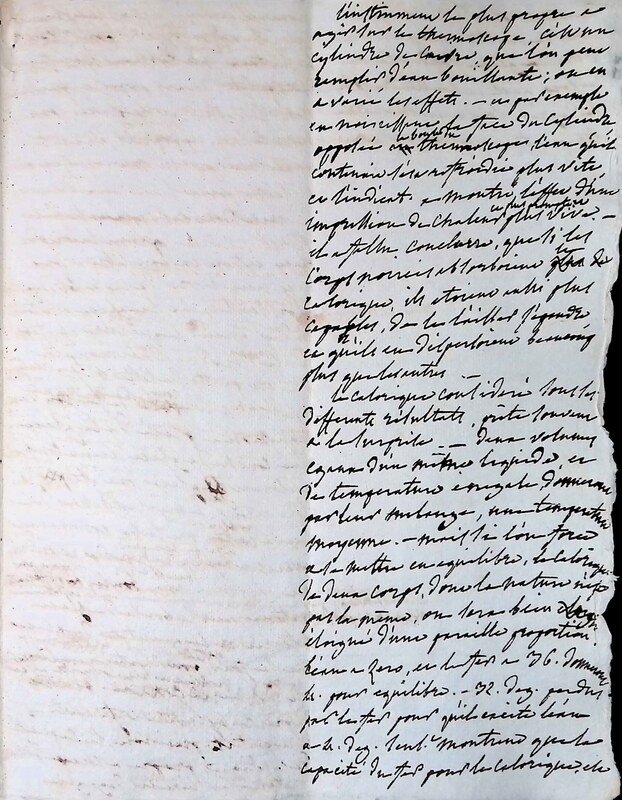 l'instrument le plus propre a
agir sur le thermoscope c'est un
cylindre de cuivre, que l'on peut
remplir d'eau bouillante; on en
a varié les effets. — en par exemple
en noircissant la face du cylindre
opposée a la boule du thermoscope l'eau qu'il
contenoit s'est refroidie plus vite
et l'indicat. a montré l'effet d'une
impression de chaleur et plus prompte plus vive. —
il a fallu conclurre, que si les
corps noircis absorboient plus de
calorique, ils etoient aussi plus
capables, de le laisser s'epandre
et qu'ils en dispersoient beaucoup
plus que les autres —
le calorique consideré sous les
differents résultats, prête souvent
a la surprise. — deux volumes
egaux d'un même liquide, et
de temperature inegale donneront
par leur melange, une temperature
moyenne. — mais si l'on force
a se mettre en equilibre, le calorique
de deux corps, dont la nature n'est
pas la même, on sera bien
éloigné d'une pareille proportion
l'eau a zero, et le fer a 36. donneront
4. pour equilibre. — 32. deg. perdus
par le fer pour qu'il excite l'eau
a 4. deg. seul.t montrent que la
capacité du fer pour le calorique, est